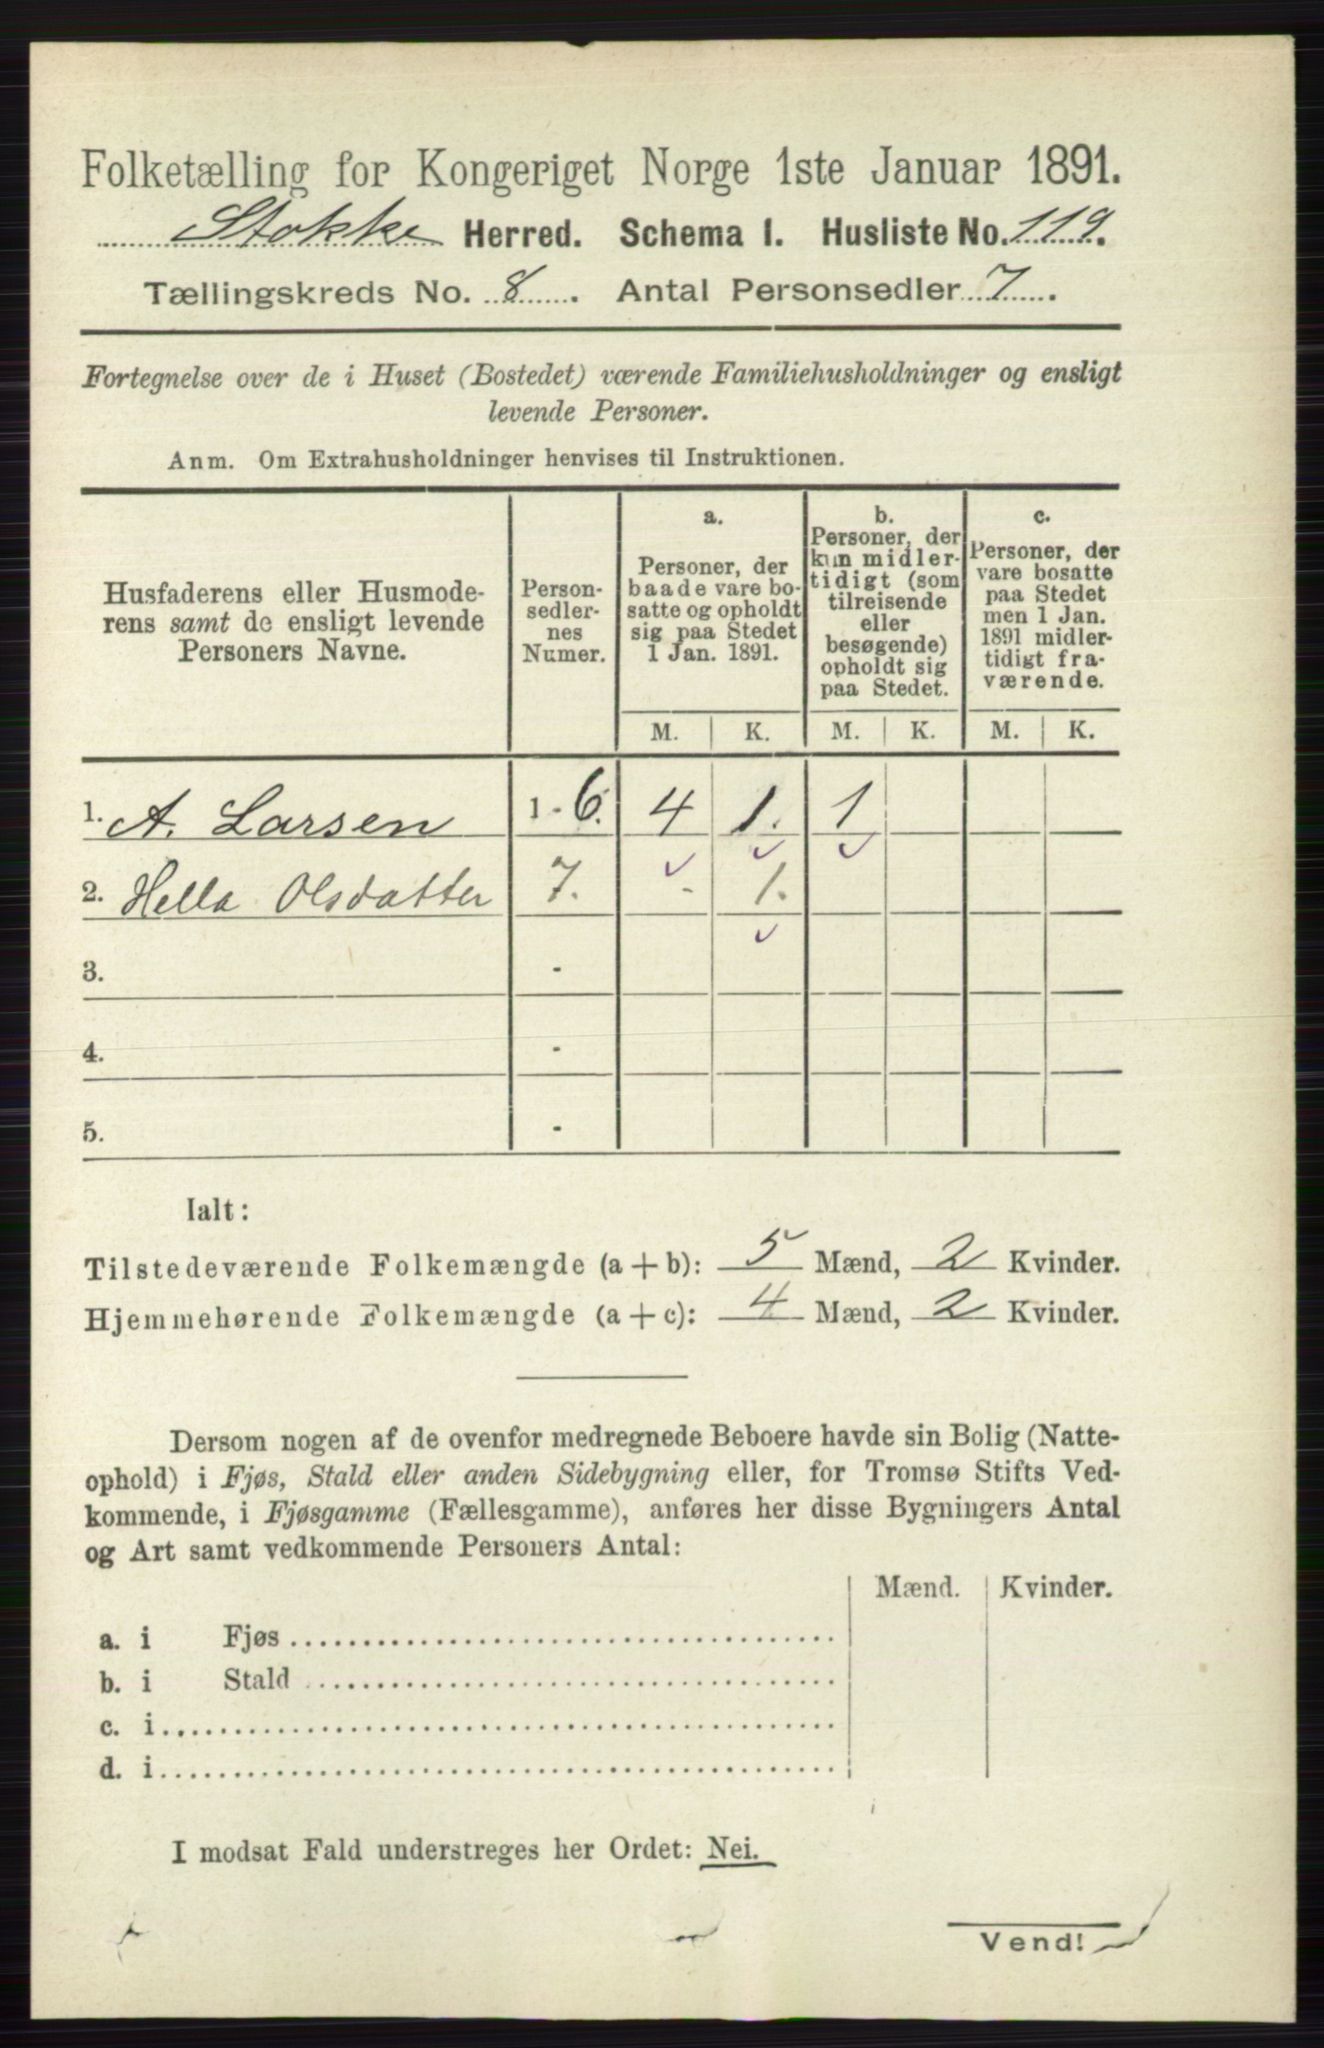 Folketælling for Kongeriget Norge 1ste Januar 1891.
Stokke Herred. Schema I. Husliste No. 119.
Tællingskreds No. 8. Antal Personsedler 7.
Fortegnelse over de i Huset (Bostedet) værende Familiehusholdninger og ensligt
levende Personer.
Anm. Om Extrahusholdninger henvises til Instruktionen.
Husfaderens eller Husmode-
rens samt de ensligt levende
Personers Navne.
Person-
sedler-
nes
Numer.
a.
Personer, der
baade vare bo-
satte og opholdt
sig paa Stedet
1 Jan. 1891.
b.
Personer, der
kun midler-
tidigt (som
tilreisende
eller
besøgende)
opholdt sig
paa Stedet.
c.
Personer, der
vare bosatte
paa Stedet
men 1 Jan.
1891 midler-
tidigt fra-
værende.
M. K. M. K. M. K.
1. A. Larsen 1 - 6. 4 1. 1
2. Hella Olsdatter 7. - 1.
3. -
4. -
5. -
Ialt:
Tilstedeværende Folkemængde (a + b): 5 Mænd, 2 Kvinder.
Hjemmehørende Folkemængde (a + c): 4 Mænd, 2 Kvinder.
Dersom nogen af de ovenfor medregnede Beboere havde sin Bolig (Natte-
ophold) i Fjøs, Stald eller anden Sidebygning eller, for Tromsø Stifts Ved-
kommende, i Fjøsgamme (Fællesgamme), anføres her disse Bygningers Antal
og Art samt vedkommende Personers Antal:
Mænd. Kvinder.
a. i Fjøs
b. i Stald
c. i
d. i
I modsat Fald understreges her Ordet: Nei.
Vend!